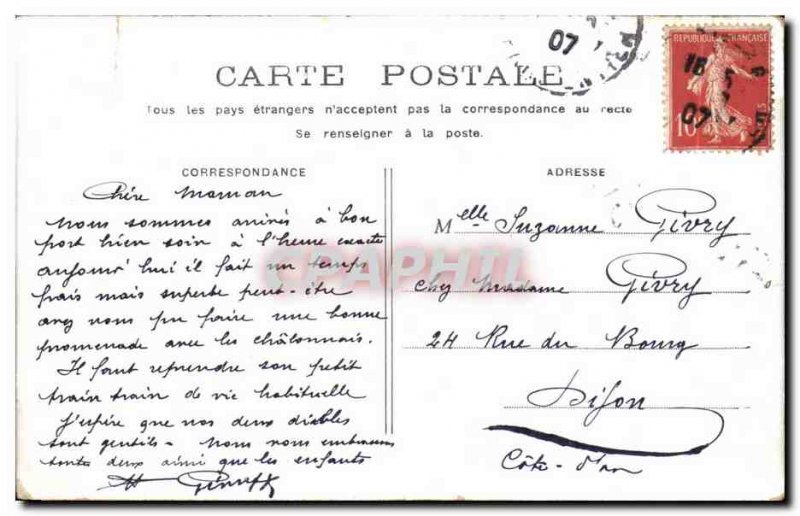 CARTE POSTALE
Tous les pays étrangers n'acceptent pas la correspondance au recto
Se renseigner à la poste.
CORRESPONDANCE
ADRESSE
REPUBLIQUE FRANÇAISE
10
07
16
07
Chère maman
Nous sommes arrivés à bon
port hier soir à l'heure exacte
aujour'hui il fait un temps
frais mais superbe peut-être
avez vous pu faire une bonne
promenade avec les châlonnais.
Il faut reprendre son petit
train train de vie habituelle
J'espère que vos deux diables
sont gentils - Nous vous embrassons
toutes deux ainsi que les enfants
Melle Suzanne Givry
chez Madame Givry
24 Rue du Bourg
Dijon
Côte-d'or
CPAPHIL